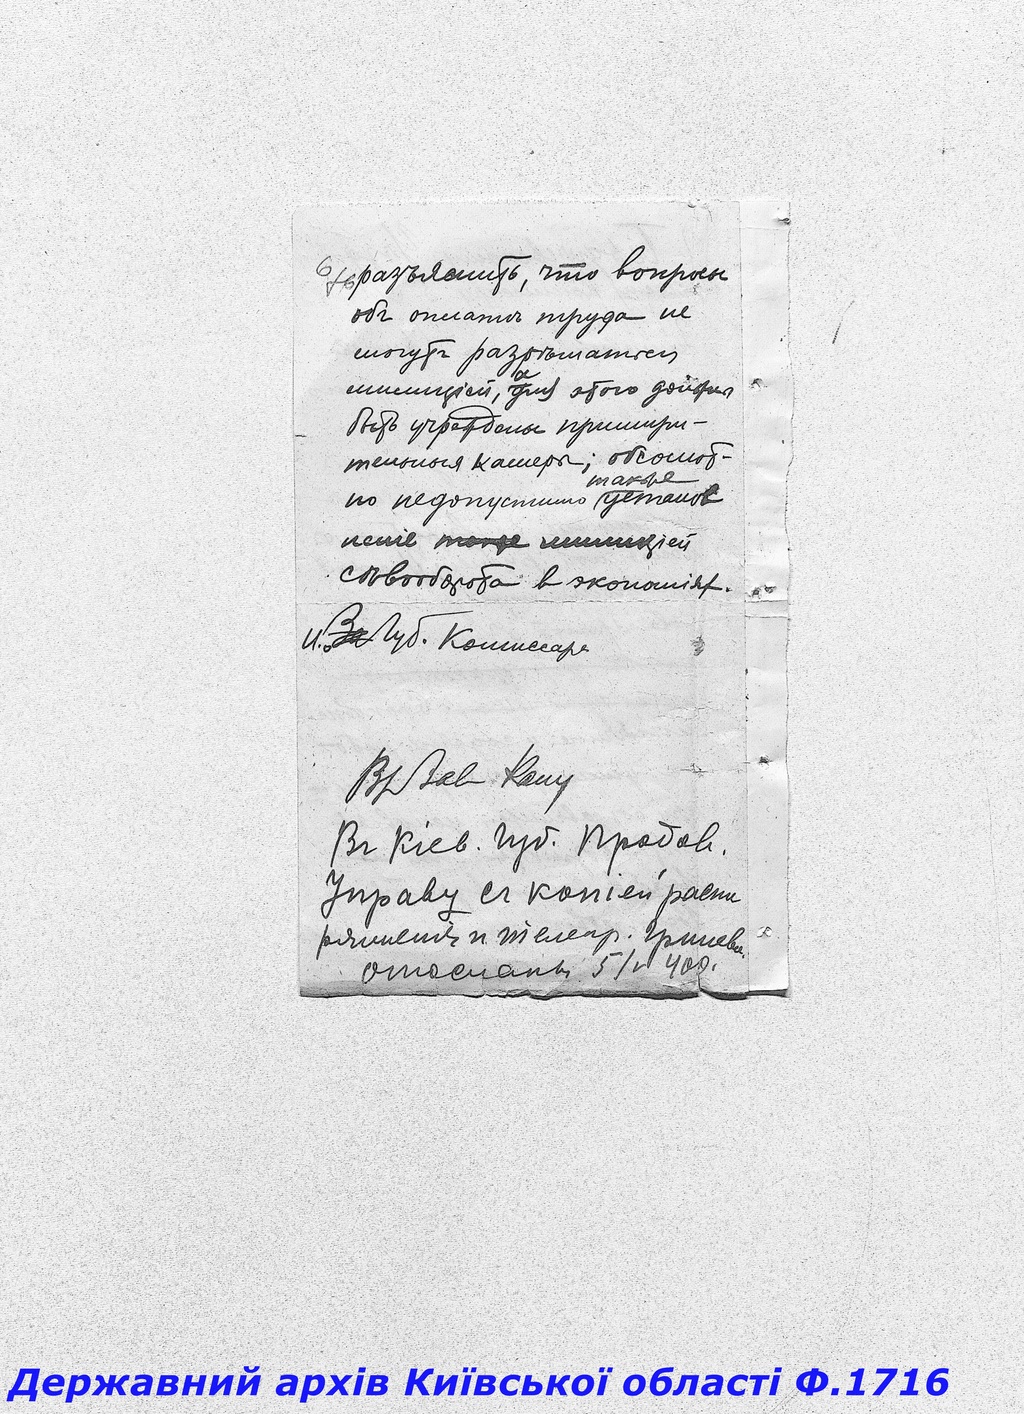 разъяснить, что вопросы
объ оплатѣ труда не
могутъ разрѣшаться
милиціей, а для этого должны
быть учреждены примири-
тельныя камеры; абсолют-
но недопустимо также установ
леніе милиціей
сѣвооборота в экономіях.
И. Губ. Комиссара
Въ Кіев. Губ. Продов.
Управу съ копіей распо
ряженія и телегр.
отослань 5/ 400.
Державний архів Київської області Ф.1716